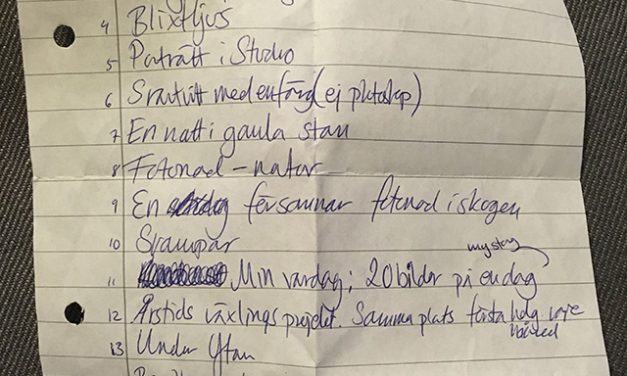 4 Blixtljus
5 Porträtt i Studio
6 Svartvitt med en färg (ej photoshop)
7 En natt i gamla stan
8 Fotonad - natur
9 En försvunnar fotonad i skogen
10 Svampar
mystery
11 Min vardag; 20 bilder på en dag
12 Årstids växlings projekt. Samma plats första helg varje
månad
13 Under Ytan